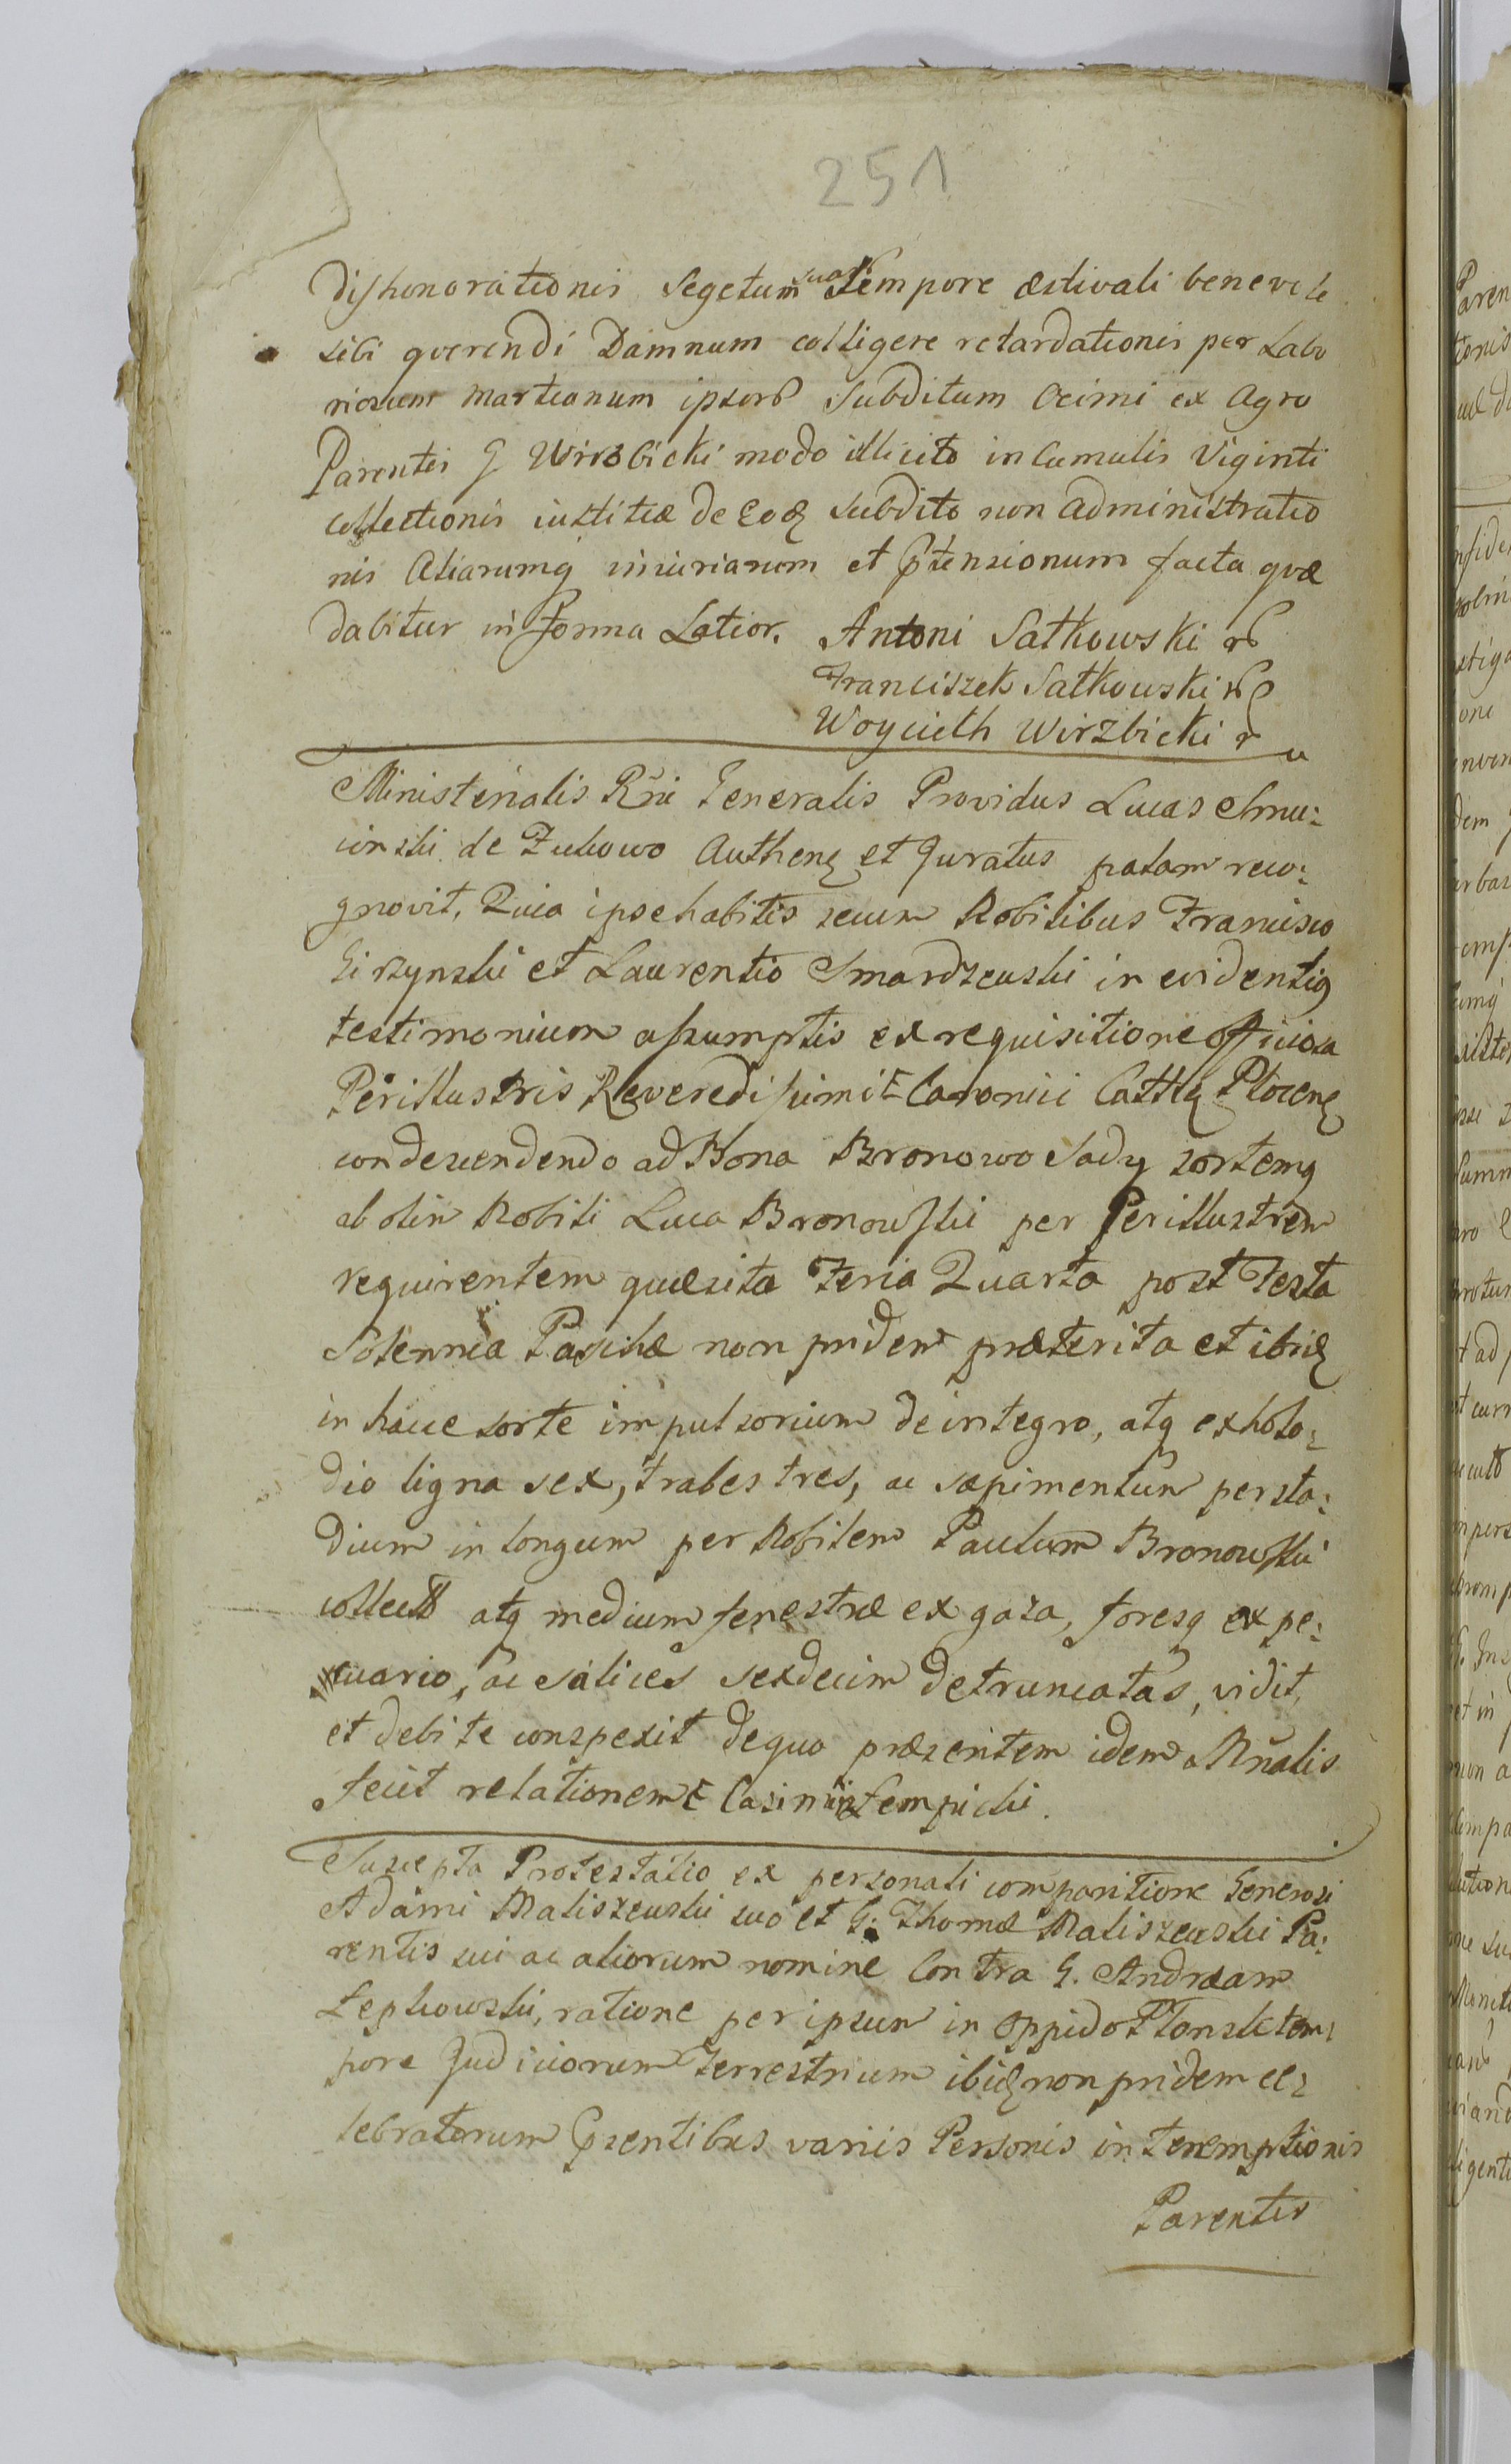 251
Dishonorationis Segetum suar Tempore æstivali benevole
sibi qverendi Damnum colligere retardationis per Labo
riosum Martianum ipsorū Subditum Ocimi ex Agro
Parentis G Wirzbicki modo illicito in Cumulis Viginti
collectionis iustitiæ de Eodꝫ subdito non administratio
nis Aliarumq iniuriarum et Ptensionum facta qvæ
dabitur in forma Latior. Antoni Satkowski
Franciszek Satkowski
Woycieth Wirzbicki
Ministerialis Rñi Generalis Providus Lucas
de Zukowo Authenꝫ et Juratus palam reco:
gnovit, Quia ipse habitis secum Nobilibus Francisco
Girzynski et Laurentio Smardzewski in evidentiꝫ
testimonium assumptis ex requisitione officiosa
Perillustris Reverediſsimi Canonici Cattlꝫ Plocenꝫ
condescendendo ad Bona Bronowo Sady sortemq
ab olim Nobili Luca Bronowski per Perillustrem
requirentem quæsita Feria Quarta post Festa
Solennia Paschæ non pridem præterita et ibidꝫ
in hacce sorte impulsorium de integro, atq ex holo:
dio ligna sex, trabes tres, ac sæpimentum per sta:
dium in longum per Nobilem Paulum Bronowski
atq medium fenestræ ex gaza, foresq ex pe:
cuario, ac salices sexdecim detruncatas, vidit,
et debite conspexit de quo præsentem idem Mñalis
fecit relationem Casimir Lempicki.
Suscepta Protestatio ex personali comparitione Generosi
Adami Maliszewski suo et G. Thomæ Maliszewski Pa:
rentis sui ac aliorum nomine Contra G. Andræam
Łepkowski, ratione per ipsum in Oppido Plonsk tem:
pore Judiciorum Terrestrium ibidꝫ non pridem ce:
lebratorum Psentibus variis Personis interemptionis
Parentis